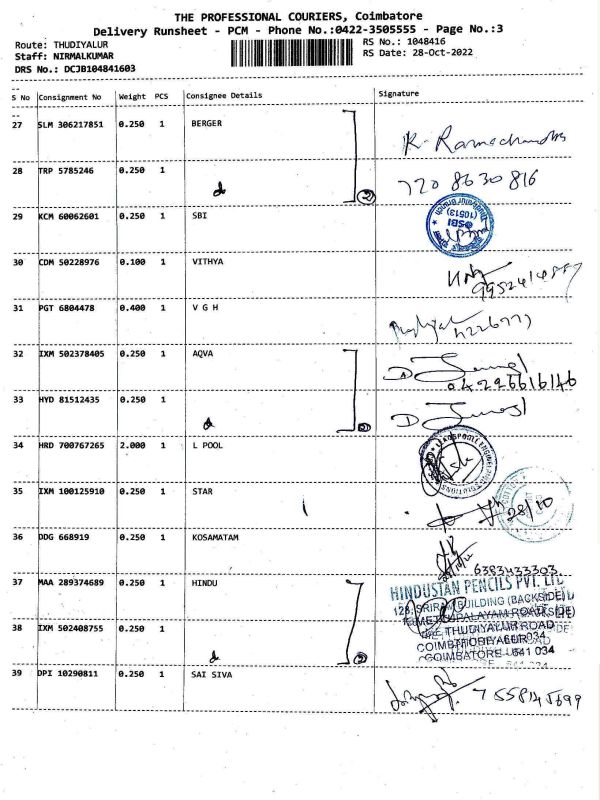 THE PROFESSIONAL COURIERS, Coimbatore
Delivery Runsheet - PCM - Phone No.:0422-3505555 - Page No.:3
Route: THUDIYALUR RS No.: 1048416
Staff: NIRMALKUMAR RS Date: 28-Oct-2022
DRS No.: DCJB104841603
S No Consignment No Weight PCS Consignee Details Signature
27 SLM 306217851 0.250 1 BERGER
28 TRP 5785246 0.250 1 720 8630 816
29 KCM 60062601 0.250 1 SBI
30 CDM 50228976 0.100 1 VITHYA
31 PGT 6804478 0.400 1 V G H
32 IXM 502378405 0.250 1 AQVA
33 HYD 81512435 0.250 1
34 HRD 700767265 2.000 1 L POOL
35 IXM 100125910 0.250 1 STAR 28/10
36 DDG 668919 0.250 1 KOSAMATAM
6383433303
37 MAA 289374689 0.250 1 HINDU
HINDUSTAN PENCILS PVT. LTD
38 IXM 502408755 0.250 1
39 DPI 10290811 0.250 1 SAI SIVA